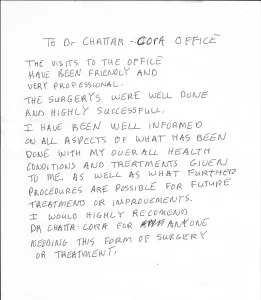 TO Dr CHATTAR-CORA OFFICE
THE VISITS TO THE OFFICE
HAVE BEEN FRIENDLY AND
VERY PROFESSIONAL.
THE SURGERYS WERE WELL DONE
AND HIGHLY SUCCESSFULL.
I HAVE BEEN WELL INFORMED
ON ALL ASPECTS OF WHAT HAS BEEN
DONE WITH MY OVER ALL HEALTH
CONDITIONS AND TREATMENTS GIVEN
TO ME. AS WELL AS WHAT FURTHER
PROCEDURES ARE POSSIBLE FOR FUTURE
TREATMENTS OR IMPROVEMENTS.
I WOULD HIGHLY RECOMEND
DR CHATTA-CORA FOR ANYONE
NEEDING THIS FORM OF SURGERY
OR TREATMENT.